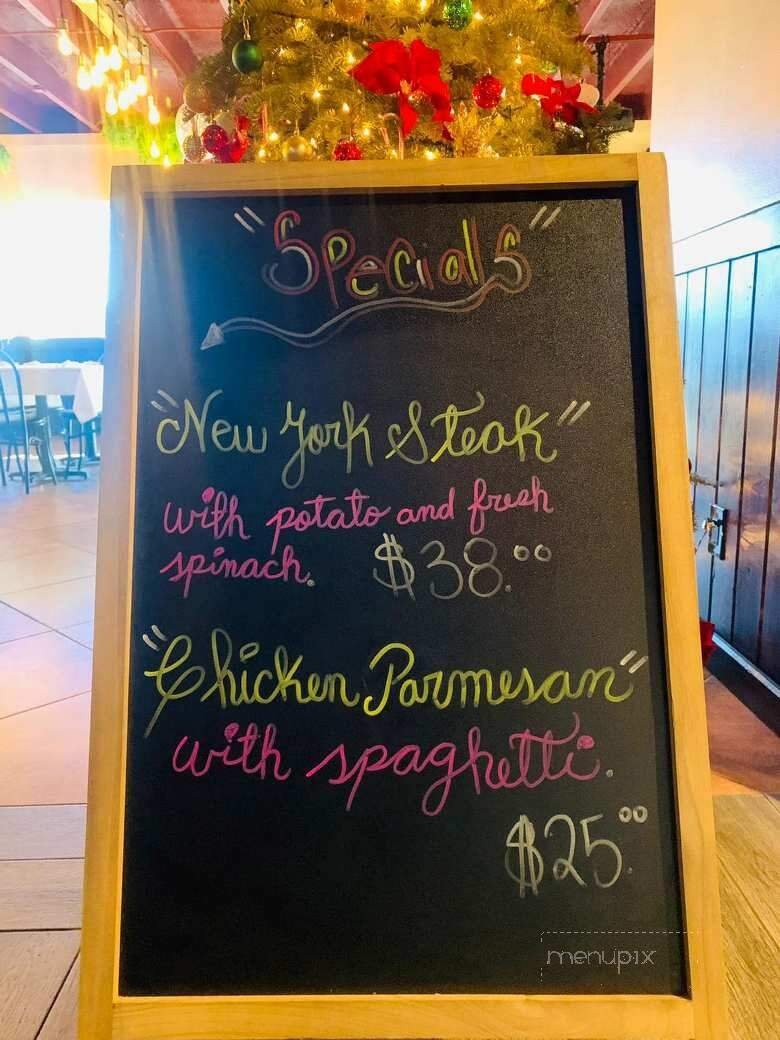 "Specials"
"New York Steak"
with potato and fresh
spinach. $38.00
"Chicken Parmesan"
with spaghetti.
$25.00
menupix